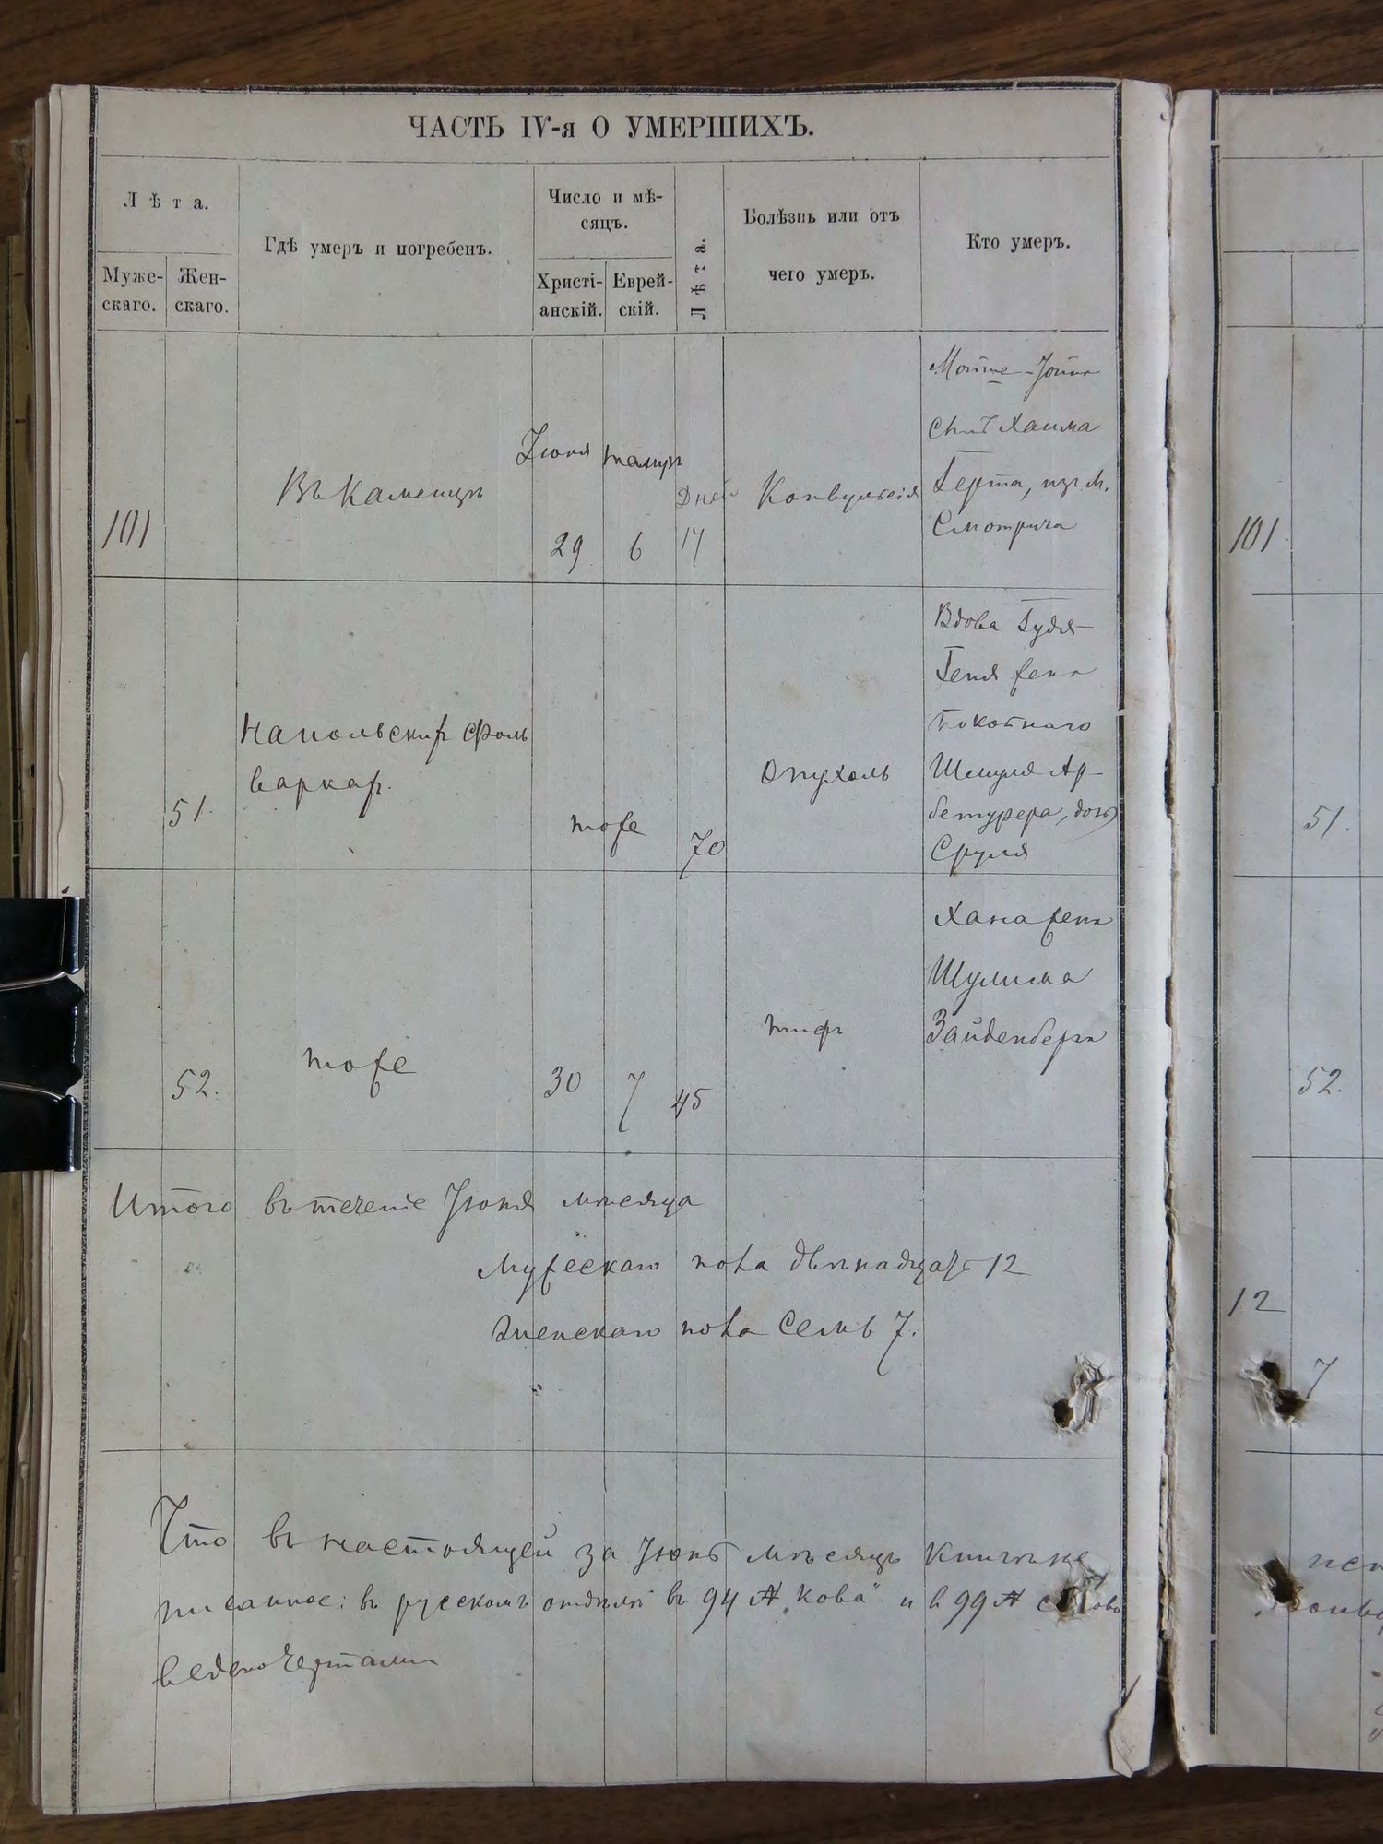 ЧАСТЬ IV-я О УМЕРШИХЪ.
Лѣта.
Муже-
скаго.
Жен-
скаго.
Гдѣ умеръ и погребенъ.
Число и мѣ-
сяцъ.
Христі-
анскій.
Еврей-
скій.
Лѣта.
Болѣзнь или отъ
чего умеръ.
Кто умеръ.
101
Въ Каменцѣ
Іюня
29
тамуз
6
Дней
17
Конвульсія
Хаима
Герта, изъ м.
Смотрича
101
51.
Напольских Фоль
варках.
тоже
70
Опухоль
Вдова Гудя
Геня жена
покойнаго
Шмуля Ар-
бетурера, дочь
Сруля
51.
52.
тоже
30
7
45
тифъ
Хана жена
Шулима
Зайденберга
52.
Итого въ теченіе Іюня мѣсяца
Мужескаго пола двѣнадцать 12
Женскаго пола Семь 7.
12
7
Что въ настоящей за Іюнь мѣсяцъ книжке
писанное: въ русскомъ отделѣ въ 94 № „кова" и в 99 №